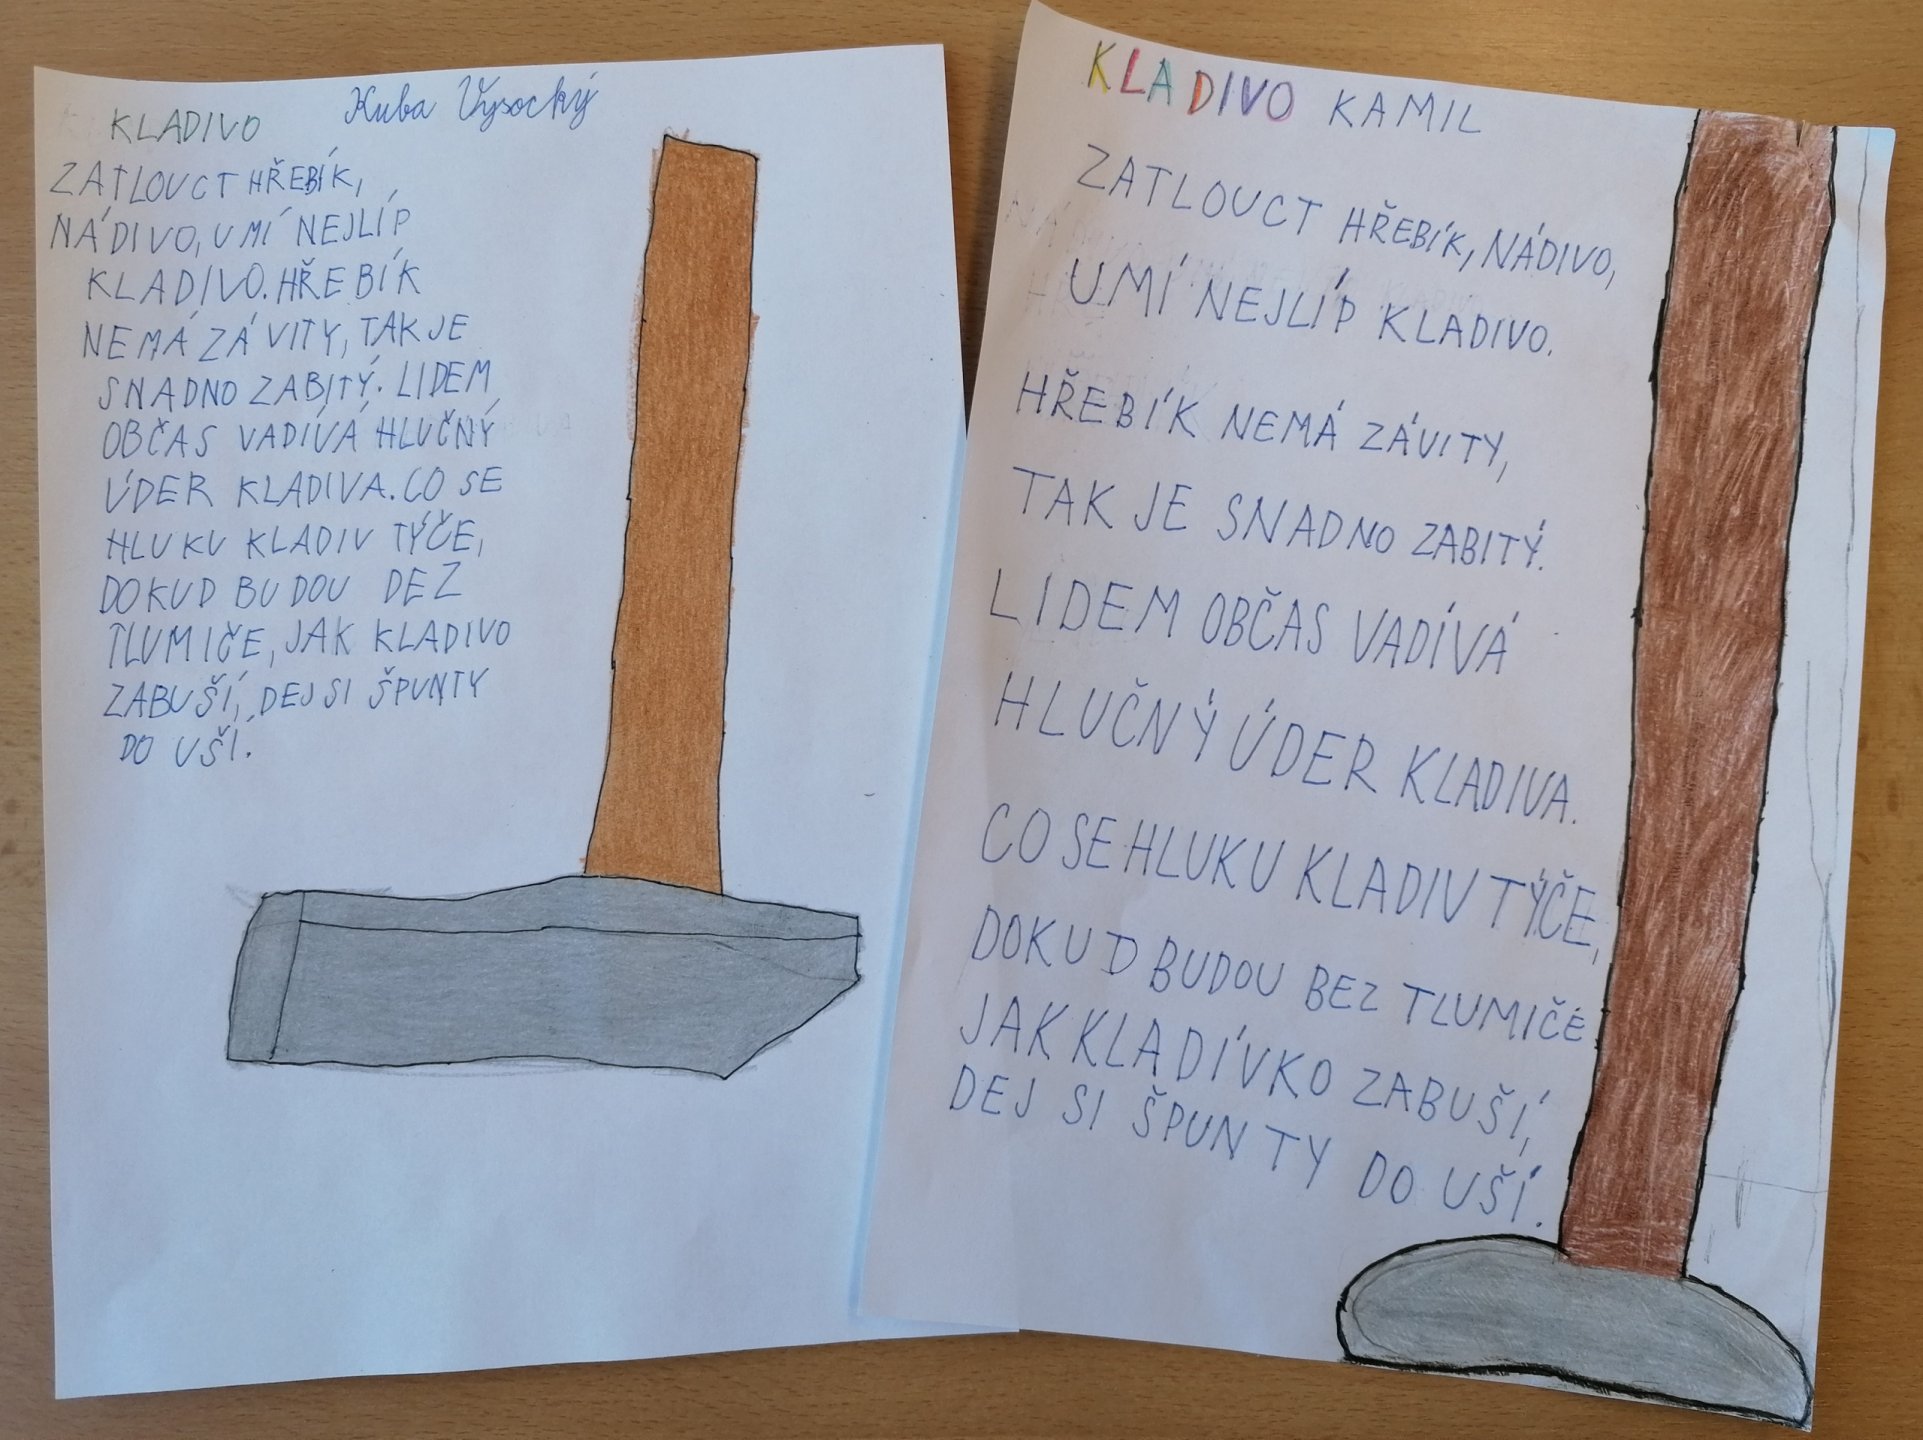 KLADIVO Kuba Vysocký
ZATLOUCT HŘEBÍK,
NÁDIVO, UMÍ NEJLÍP
KLADIVO. HŘEBÍK
NEMÁ ZÁVITY, TAK JE
SNADNO ZABITÝ. LIDEM
OBČAS VADÍVÁ HLUČNÝ
ÚDER KLADIVA. CO SE
HLUKU KLADIV TÝČE,
DOKUD BUDOU DEZ
TLUMIČE, JAK KLADIVO
ZABUŠÍ, DEJ SI ŠPUNTY
DO UŠÍ.
KLADIVO KAMIL
ZATLOUCT HŘEBÍK, NÁDIVO,
UMÍ NEJLÍP KLADIVO.
HŘEBÍK NEMÁ ZÁVITY,
TAK JE SNADNO ZABITÝ.
LIDEM OBČAS VADÍVÁ
HLUČNÝ ÚDER KLADIVA.
CO SE HLUKU KLADIV TÝČE,
DOKUD BUDOU BEZ TLUMIČE
JAK KLADÍVKO ZABUŠÍ,
DEJ SI ŠPUNTY DO UŠÍ.